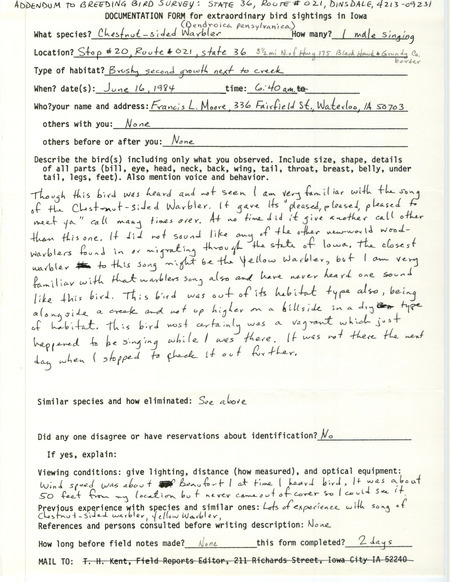 ADDENDUM TO BREEDING BIRD SURVEY: STATE 36, ROUTE #021, DINSDALE, 4213-09231
DOCUMENTATION FORM for extraordinary bird sightings in Iowa
(Dendroica pensylvanica)
What species? Chestnut-sided Warbler How many? 1 male singing
Location? Stop #20, Route #021, state 36 3½ mi N. of Hwy 175 Black Hawk & Grundy Co. border
Type of habitat? Brushy second growth next to creek
When? date(s): June 16, 1984 time: 6:40 am to
Who? your name and address: Francis L. Moore, 336 Fairfield St., Waterloo, IA 50703
others with you: None
others before or after you: None
Describe the bird(s) including only what you observed. Include size, shape, details
of all parts (bill, eye, head, neck, back, wing, tail, throat, breast, belly, under
tail, legs, feet). Also mention voice and behavior.
Though this bird was heard and not seen I am very familiar with the song
of the Chestnut-sided Warbler. It gave its "pleased, pleased, pleased to
meet ya" call many times over. At no time did it give another call other
than this one. It did not sound like any of the other new world wood-
warblers found in or migrating through the state of Iowa. The closest
warbler to this song might be the Yellow Warbler, but I am very
familiar with that warblers song also and have never heard one sound
like this bird. This bird was out of its habitat type also, being
alongside a creek and not up higher on a hillside in a dry type
of habitat. This bird most certainly was a vagrant which just
happened to be singing while I was there. It was not there the next
day when I stopped to check it out further.
Similar species and how eliminated: See above
Did any one disagree or have reservations about identification? No
If yes, explain:
Viewing conditions: give lighting, distance (how measured), and optical equipment:
Wind speed was about Beaufort 1 at time I heard bird. It was about
50 feet from my location but never came out of cover so I could see it
Previous experience with species and similar ones: Lots of experience with song of
Chestnut-sided warbler, Yellow Warbler,
References and persons consulted before writing description: None
How long before field notes made? None this form completed? 2 days
MAIL TO: T. H. Kent, Field Reports Editor, 211 Richards Street, Iowa City IA 52240